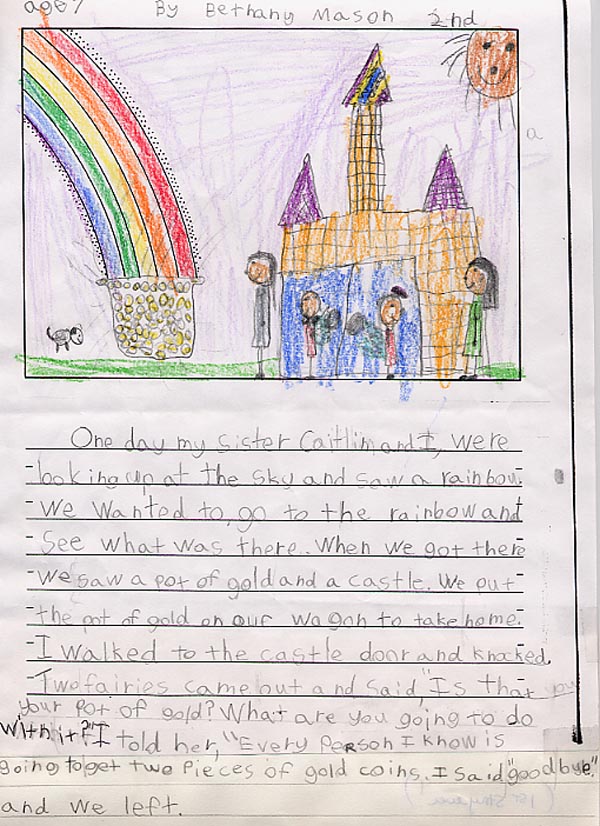 age 7 By Bethany Mason 2nd
One day my sister Caitlin and I, were
looking up at the sky and saw a rainbow.
We wanted to, go to the rainbow and
See what was there.. When we got there
we saw a pot of gold and a castle. We put
the pot of gold on our wagon to take home.
I walked to the castle door and knocked.
Two fairies came out and said, "Is that you
your pot of gold? What are you going to do
with it?" I told her, "Every person I know is
going to get two pieces of gold coins. I said "good bye".
and we left.